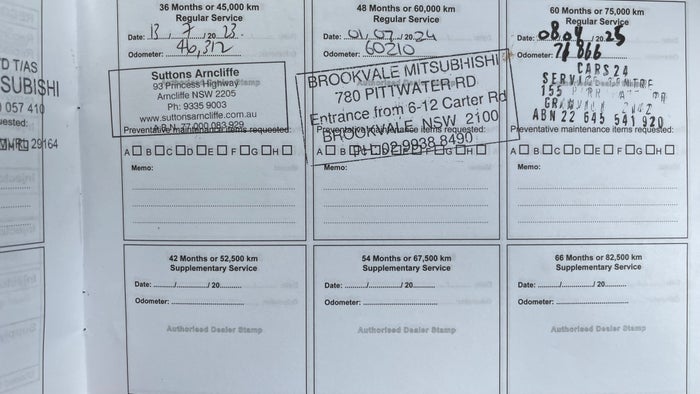 D T/AS
SUBISHI
057 410
ested:
29164
36 Months or 45,000 km
Regular Service
Date: 13 / 7 / 20 23
Odometer: 46,312
Suttons Arncliffe
93 Princess Highway
Arncliffe NSW 2205
Ph: 9335 9003
www.suttonsarncliffe.com.au
A.B.N. 77 000 083 929
Preventative maintenance items requested:
A B C D E F G H
Memo:
48 Months or 60,000 km
Regular Service
Date: 01/07/2024
Odometer: 60210
BROOKVALE MITSUBHISHI
780 PITTWATER RD
Entrance from 6-12 Carter Rd
BROOKVALE, NSW 2100
PH:02 9938 8490
Preventative maintenance items requested:
A B C D E F G H
Memo:
60 Months or 75,000 km
Regular Service
Date: 08.04.2025
Odometer: 76866
CARS24
SERVICE CENTRE
155
ABN 22 645 541 920
Preventative maintenance items requested:
A B C D E F G H
Memo:
42 Months or 52,500 km
Supplementary Service
Date: / / 20
Odometer:
Authorised Dealer Stamp
54 Months or 67,500 km
Supplementary Service
Date: / / 20
Odometer:
Authorised Dealer Stamp
66 Months or 82,500 km
Supplementary Service
Date: / / 20
Odometer:
Authorised Dealer Stamp